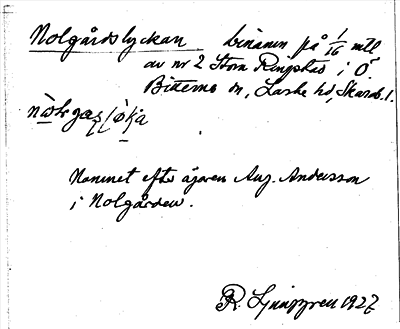 Nolgårdslyckan binamn på 1/16 mtl
av nr 2 Stora Ringstad i Ö.
Bitterna sn, Laske hd, Skarab. l.
Namnet efter ägaren Aug. Andersson
i Nolgården.
R. Ljunggren 1927